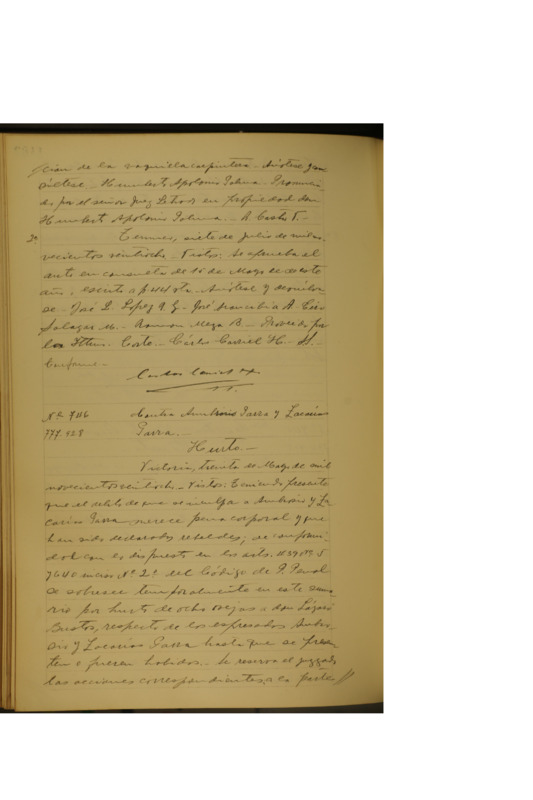 cion de la maquilla carpintera. Anótese y con
súltese. Humberto Apolonio Palma. Pronuncia
do por el señor Juez Letrado en propiedad don
Humberto Apolonio Palma. A. Castro T.
2ª Temuco, siete de Julio de mil no
vecientos veintiocho. Vistos: Se aprueba el
auto en consulta de 10 de Mayo de este
año, escrito a f. vta. Anótese y devuélva
se. José L. López G. José A.
Salazar M. Ramon Meza B. Proveido por
la Iltma. Corte. Cárlos H. S.
Conforme.
Nº 7116 Contra Ambrosio Parra y Zacarias
777.928 Parra.
Hurto
Victoria, treinta de Mayo de mil
novecientos veintiocho. Vistos: Teniendo presente
que el delito de que se inculpa a Ambrosio y Za
carias Parra merece pena corporal y que
han sido declarados rebeldes; de conformi
dad con lo dispuesto en los arts.
y 640 inciso Nº 2º del Código de P. Penal
se sobresee temporalmente en este suma
rio por hurto de ocho ovejas a don Lázaro
Bustos, respecto de los espresados Ambro
sio y Zacarias Parra hasta que se presen
ten o fueren habidos. Se reserva al juzgado
las acciones correspondientes a la parte